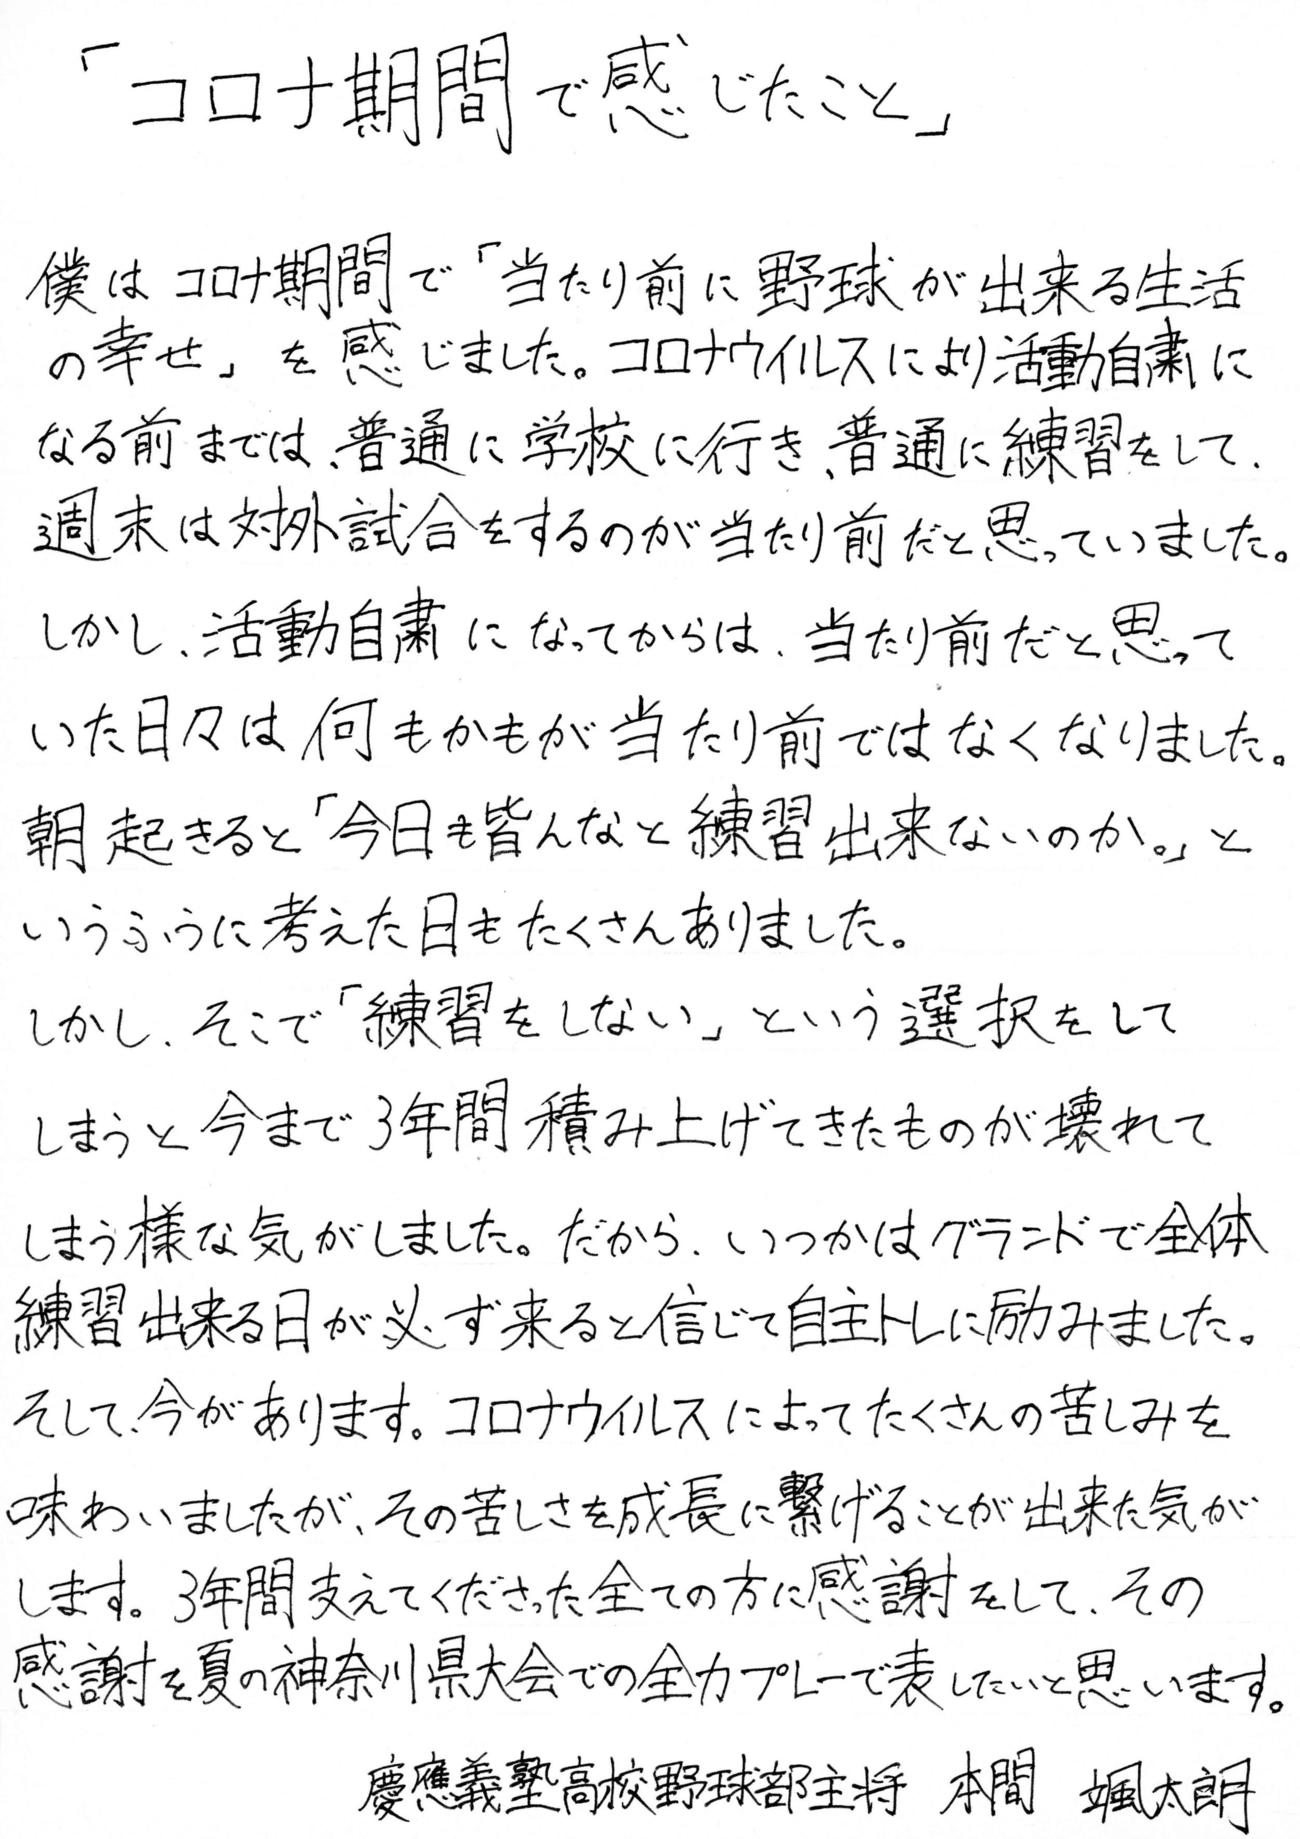 「コロナ期間で感じたこと」
僕はコロナ期間で「当たり前に野球が出来る生活
の幸せ」を感じました。コロナウイルスにより活動自粛に
なる前までは、普通に学校に行き、普通に練習をして、
週末は対外試合をするのが当たり前だと思っていました。
しかし、活動自粛になってからは、当たり前だと思って
いた日々は何もかもが当たり前ではなくなりました。
朝起きると「今日も皆んなと練習出来ないのか。」と
いうふうに考えた日もたくさんありました。
しかし、そこで「練習をしない」という選択をして
しまうと今まで3年間積み上げてきたものが壊れて
しまう様な気がしました。だから、いつかはグランドで全体
練習出来る日が必ず来ると信じて自主トレに励みました。
そして、今があります。コロナウイルスによってたくさんの苦しみを
味わいましたが、その苦しさを成長に繋げることが出来た気が
します。3年間支えてくださった全ての方に感謝をして、その
感謝を夏の神奈川県大会での全力プレーで表したいと思います。
慶應義塾高校野球部主将 本間 颯太朗